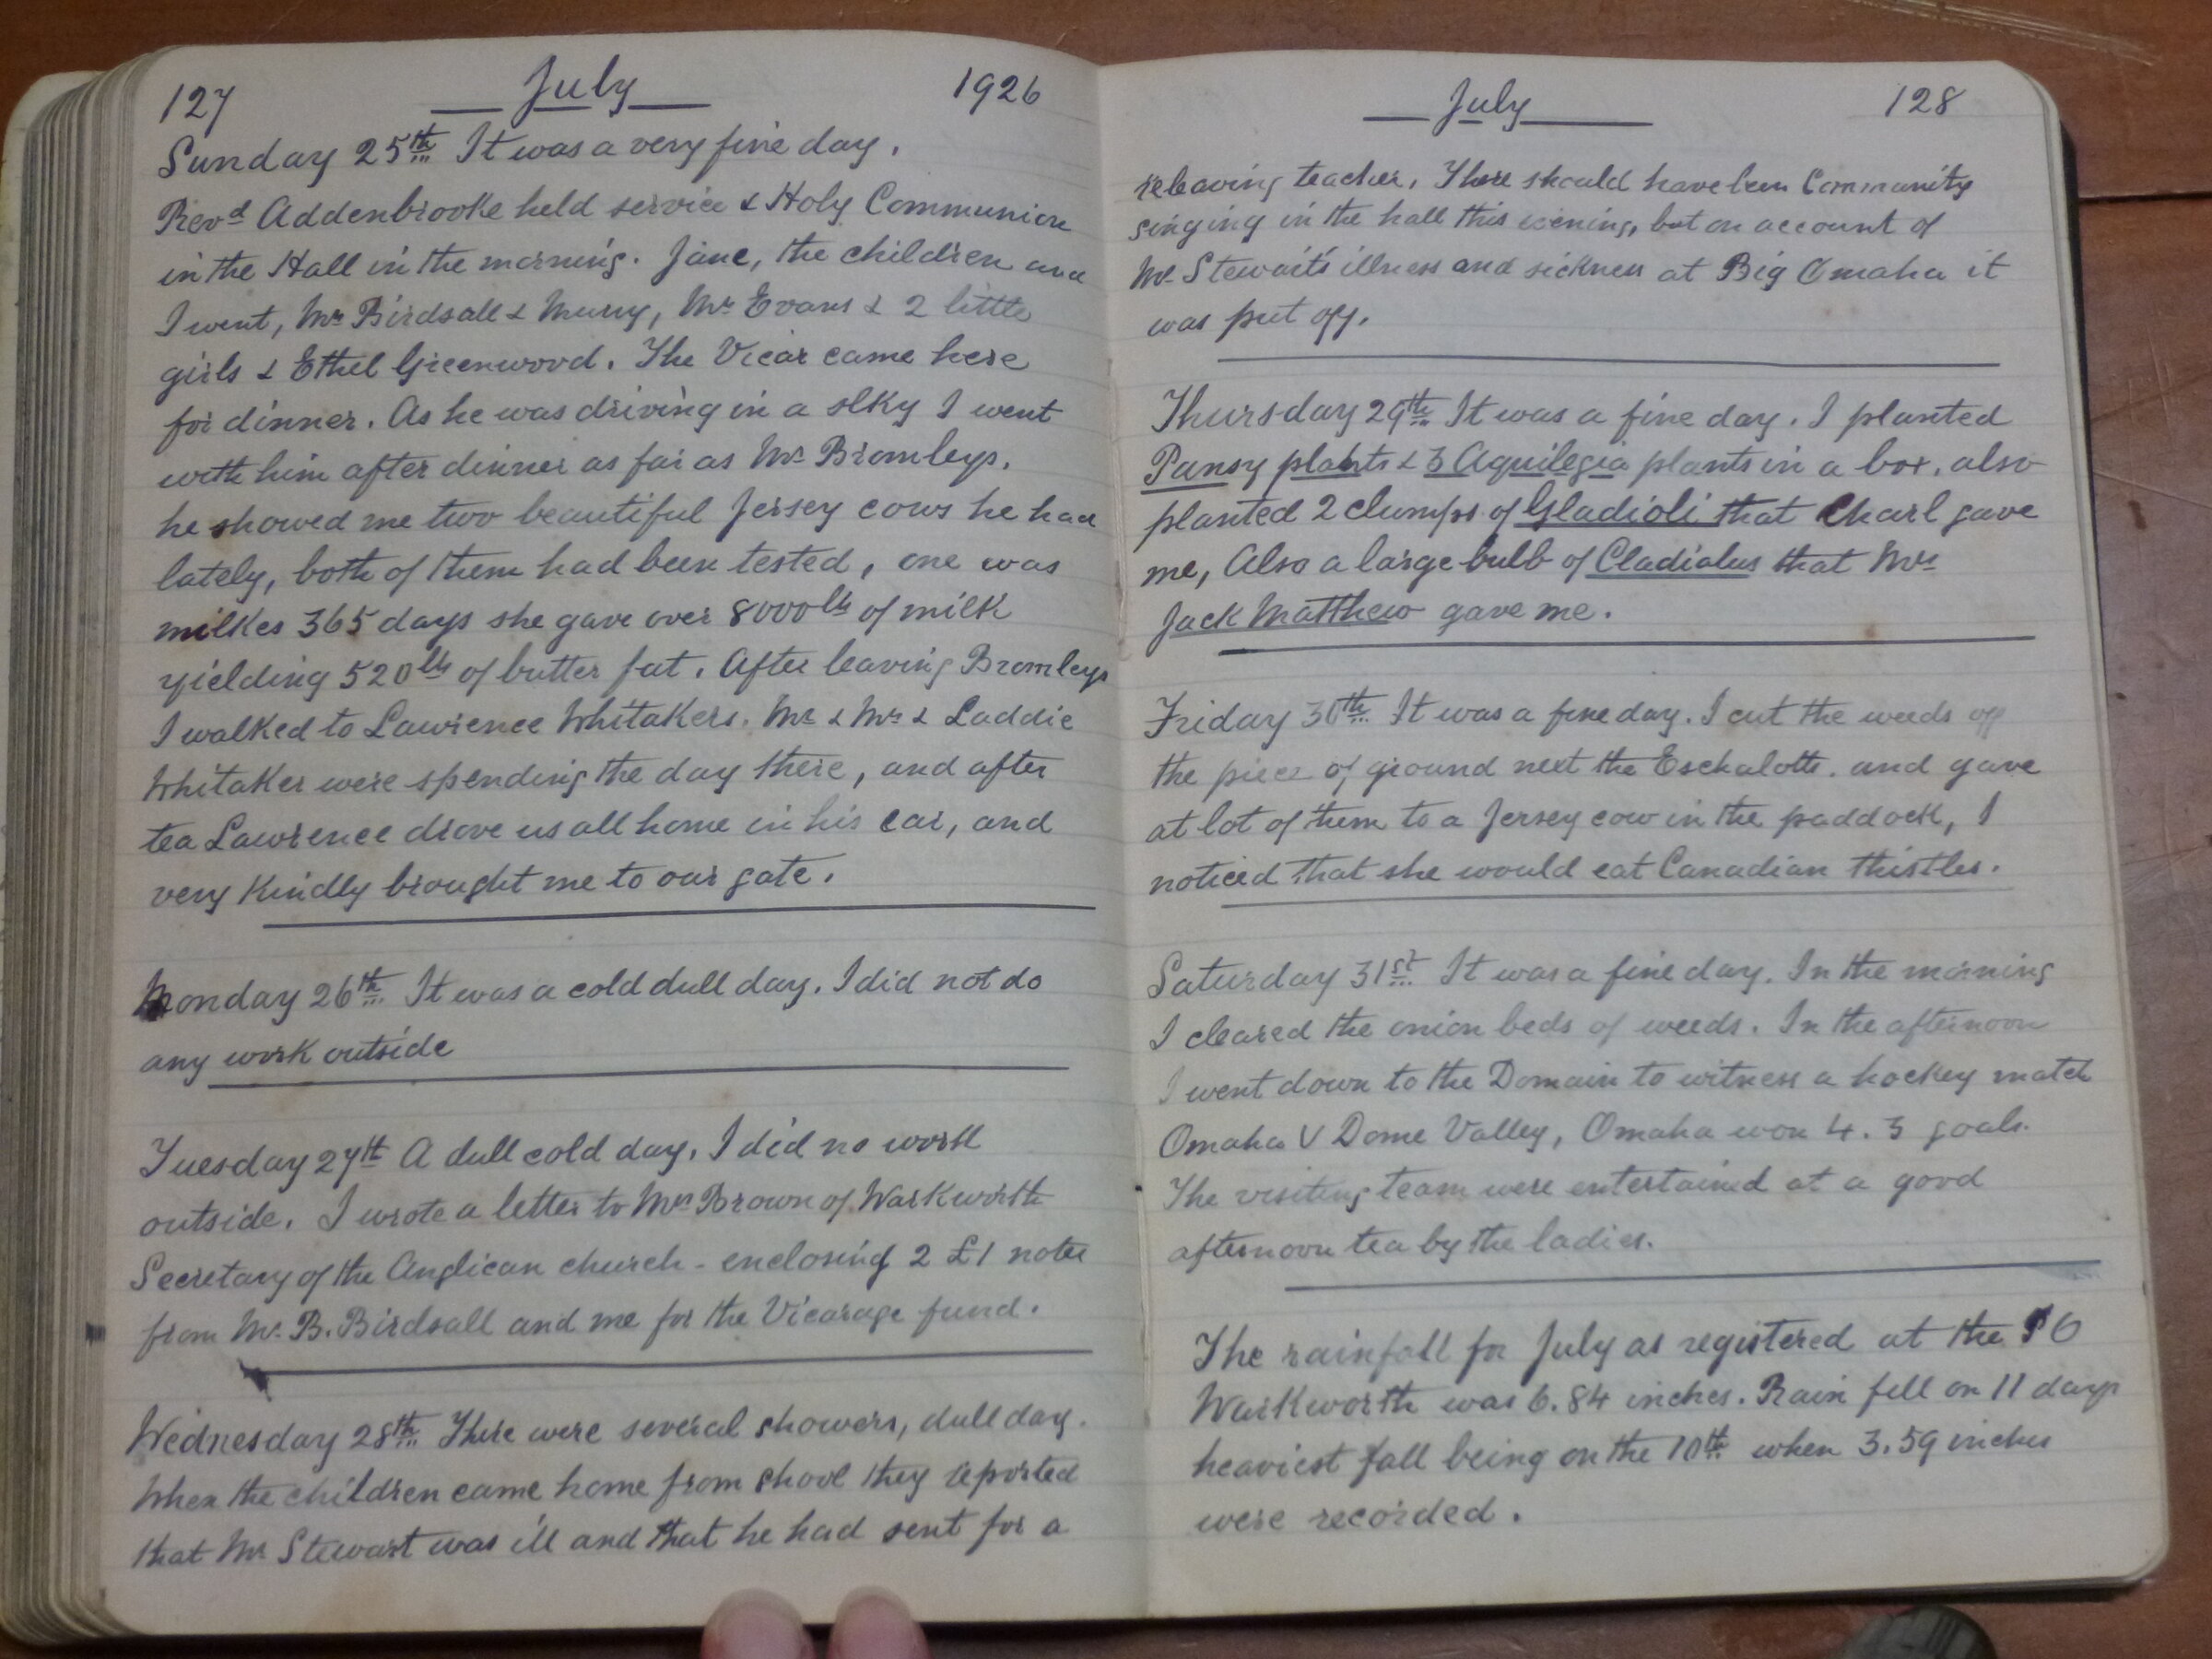 127 July 1926
Sunday 25th It was a very fine day.
Revd Addenbrooke held service & Holy Communion
in the Hall in the morning. Jane, the children and
I went, Mr Birdsall & Murry, Mr Evans & 2 little
girls & Ethel Greenwood. The Vicar came here
for dinner. As he was driving in a slky I went
with him after dinner as far as Mr Bromleys.
he showed me two beautiful Jersey cows he had
lately, both of them had been tested, one was
milkes 365 days she gave over 8000lbs of milk
yielding 520lbs of butter fat. After leaving Bromleys
I walked to Lawrence Whitakers. Mr & Mrs & Laddie
Whitaker were spending the day there, and after
tea Lawrence drove us all home in his car, and
very kindly brought me to our gate.
Monday 26th It was a cold dull day. I did not do
any work outside
Tuesday 27th A dull cold day. I did no work
outside. I wrote a letter to Mrs Brown of Warkworth
Secretary of the Anglican church - enclosing 2 £1 notes
from Mr. B. Birdsall and me for the Vicarage fund.
Wednesday 28th There were several showers, dull day.
When the children came home from shool they reported
that Mr Stewart was ill and that he had sent for a
July 128
releaving teacher. There should have been Community
singing in the hall this evening, but on account of
Mr. Stewart's illness and sickness at Big Omaha it
was put off.
Thursday 29th It was a fine day. I planted
Pansy plants & 3 Aquilegia plants in a box, also
planted 2 clumps of Gladioli that Charl gave
me, Also a large bulb of Cladialus that Mrs
Jack Matthew gave me.
Friday 30th It was a fine day. I cut the weeds off
the piece of ground next the Eschalotts. and gave
at lot of them to a Jersey cow in the paddock, I
noticed that she would eat Canadian thistles.
Saturday 31st It was a fine day. In the morning
I cleared the onion beds of weeds. In the afternoon
I went down to the Domain to witness a hockey match
Omaha V Dome Valley, Omaha won 4. 3 goals.
The visiting team were entertained at a good
afternoon tea by the ladies.
The rainfall for July as registered at the PO
Warkworth was 6.84 inches. Rain fell on 11 days
heaviest fall being on the 10th when 3.59 inches
were recorded.